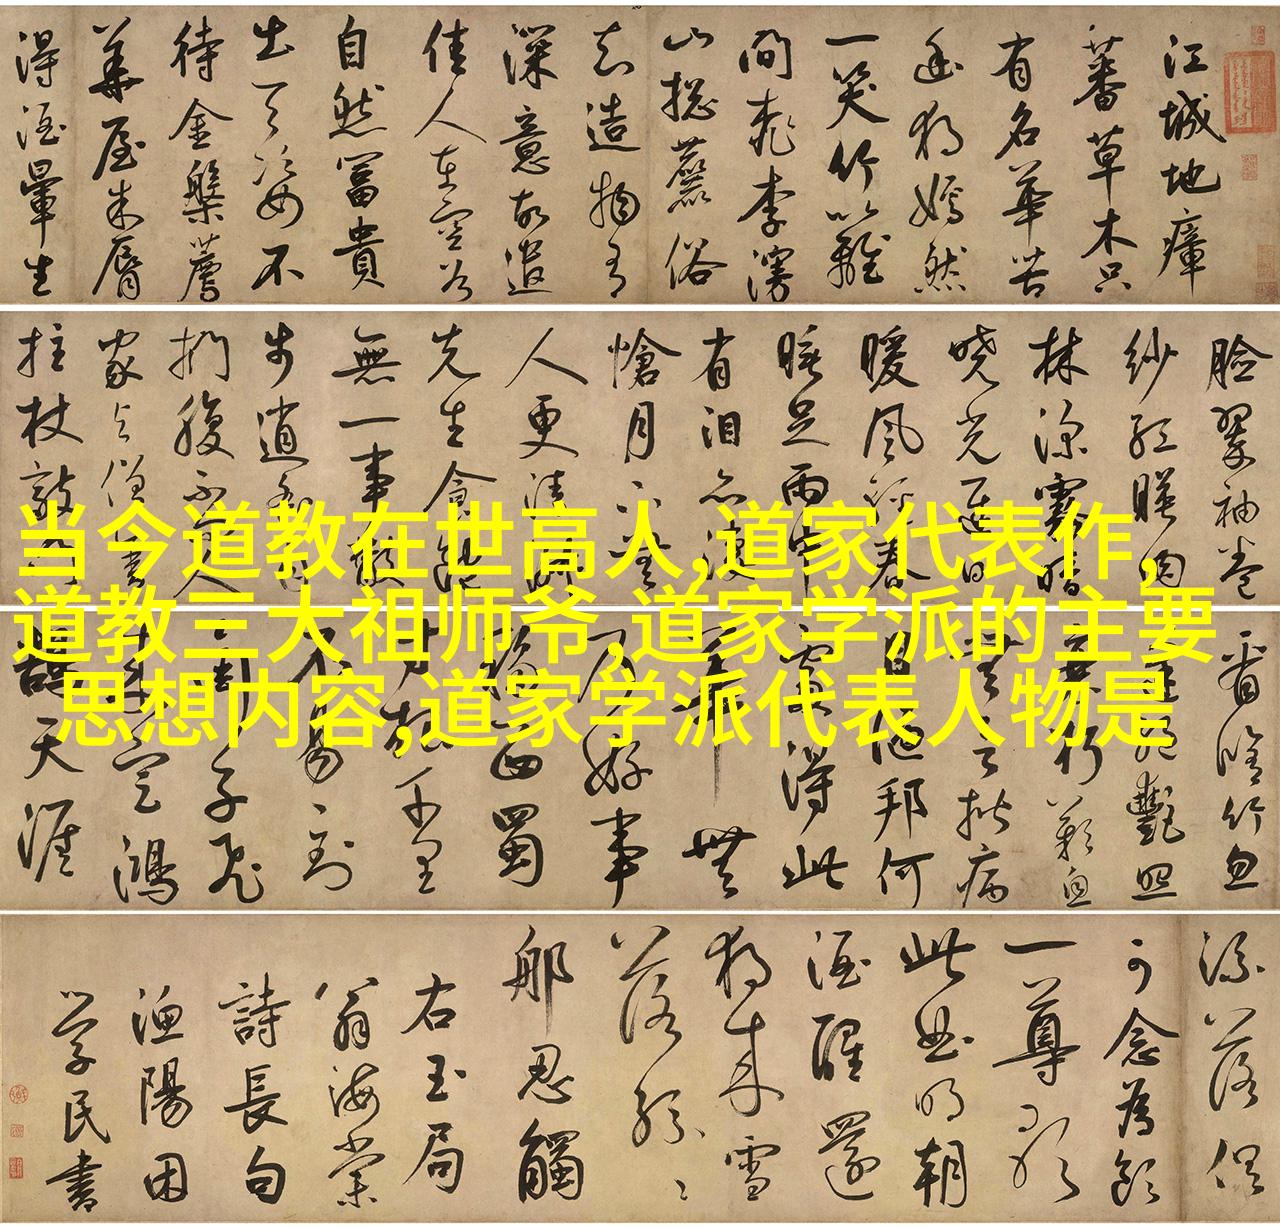 江城地瘴
蕃草木只
有名華苦
幽獨嫣然
一笑竹籬
間桃李漫
山總麤俗
知造物有
深意故遣
佳人在空谷
自然富貴
出天姿不
待金盤薦
華屋朱脣
得酒暈生
臉翠袖卷
紗紅映肉
林深霧暗
曉光遲日
暖風輕春
睡足雨中
有淚亦悽
愴月下無
人更清淑
先生食飽
無一事散
步逍遙自
捫腹不問人
家與僧舍
拄杖敲門
看脩竹忽
逢絕豔照
衰朽歎息
無言揩病
目陋邦何
處得此
華無
乃好事
移西蜀
寸根千里
不易到
銜子飛
來定鴻
鵠天涯
流落俱
可念為飲
一尊歌
此曲明朝
酒醒還
獨來雪
落紛紛
那忍觸
右玉局
翁海棠
詩長句
漁陽困
學民書
当今道教在世高人,道家代表作,
道教三大祖师爷,道家学派的主要
思想内容,道家学派代表人物是